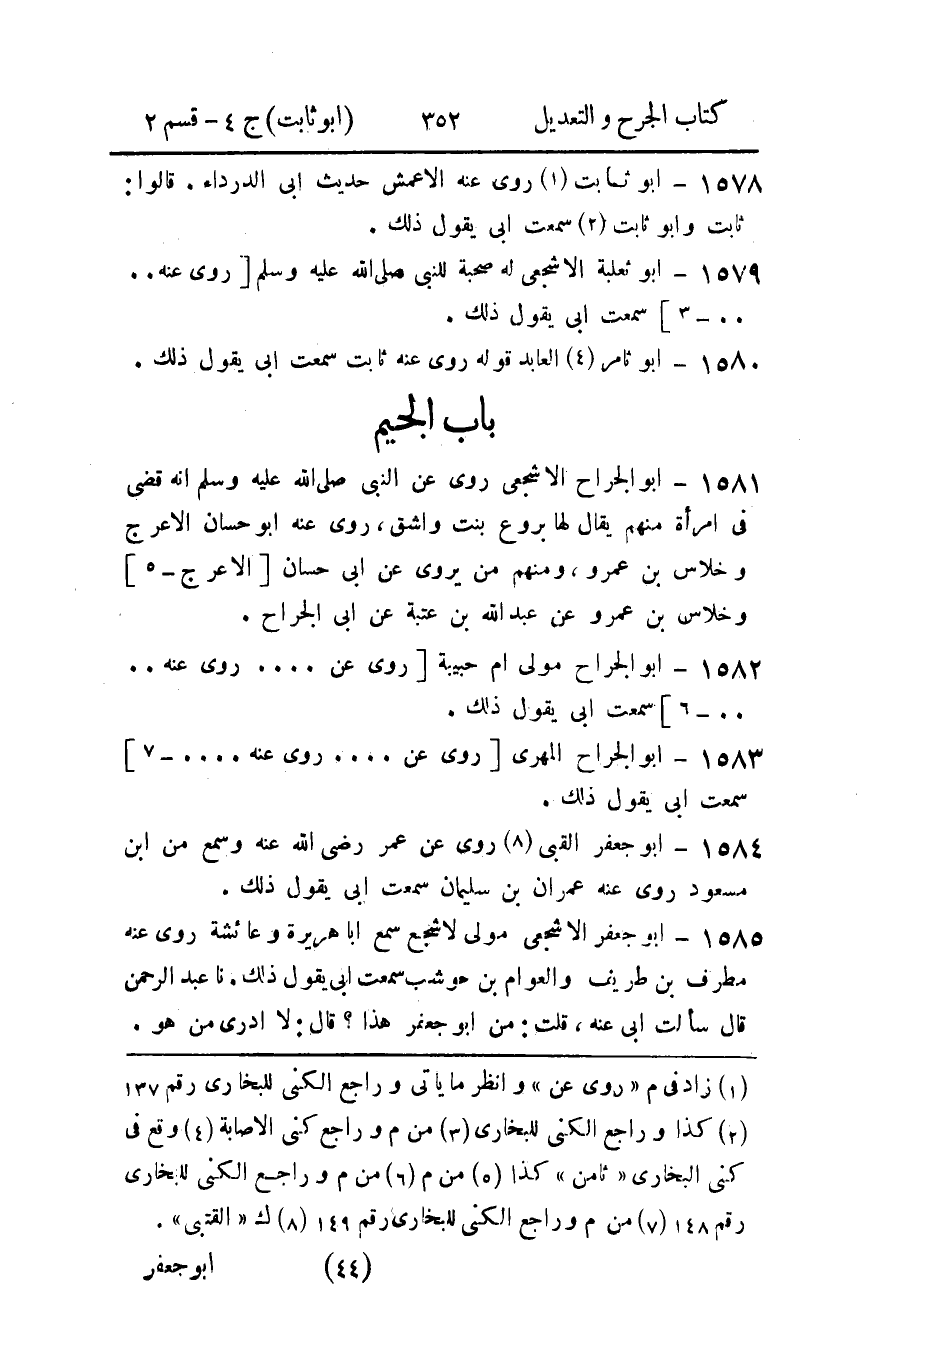 كتاب الجرح و التعديل ٣٥٢ (ابو ثابت) ج ٤ - قسم ٢
١٥٧٨ - ابو ثابت (١) روى عنه الاعمش حديث ابى الدرداء . قالوا :
ثابت وابو ثابت (٢) سمعت ابى يقول ذلك .
١٥٧٩ - ابو ثعلبة الاشجعى له صحبة للنبى صلى الله عليه وسلم [ روى عنه . .
. . - ٣ ] سمعت ابى يقول ذلك .
١٥٨٠ - ابو ثامر (٤) العابد قوله روى عنه ثابت سمعت ابى يقول ذلك .
باب الجيم
١٥٨١ - ابو الجراح الاشجعى روى عن النبى صلى الله عليه وسلم انه قضى
فى امرأة منهم يقال لها بروع بنت واشق ، روى عنه ابو حسان الاعرج
وخلاس بن عمرو ، ومنهم من يروى عن ابى حسان [ الاعرج - ٥ ]
وخلاس بن عمرو عن عبد الله بن عتبة عن ابى الجراح .
١٥٨٢ - ابو الجراح مولى ام حبيبة [ روى عن . . . . روى عنه . .
. . - ٦ ] سمعت ابى يقول ذلك .
١٥٨٣ - ابو الجراح المهرى [ روى عن . . . . روى عنه . . . . - ٧ ]
سمعت ابى يقول ذلك .
١٥٨٤ - ابو جعفر القبى (٨) روى عن عمر رضى الله عنه وسمع من ابن
مسعود روى عنه عمران بن سليمان سمعت ابى يقول ذلك .
١٥٨٥ - ابو جعفر الاشجعى مولى لاشجع سمع ابا هريرة وعائشة روى عنه
مطرف بن طريف والعوام بن حوشب سمعت ابى يقول ذلك . نا عبد الرحمن
قال سألت ابى عنه ، قلت : من ابو جعفر هذا ؟ قال : لا ادرى من هو .
(١) زاد فى م « روى عن » و انظر ما يأتى و راجع الكنى للبخارى رقم ١٣٧
(٢) كذا و راجع الكنى للبخارى (٣) من م و راجع كنى الاصابة (٤) وقع فى
كنى البخارى « ثامن » كذا (٥) من م (٦) من م و راجع الكنى للبخارى
رقم ١٤٨ (٧) من م و راجع الكنى للبخارى رقم ١٤٩ (٨) ك « القتبى » .
(٤٤) ابو جعفر